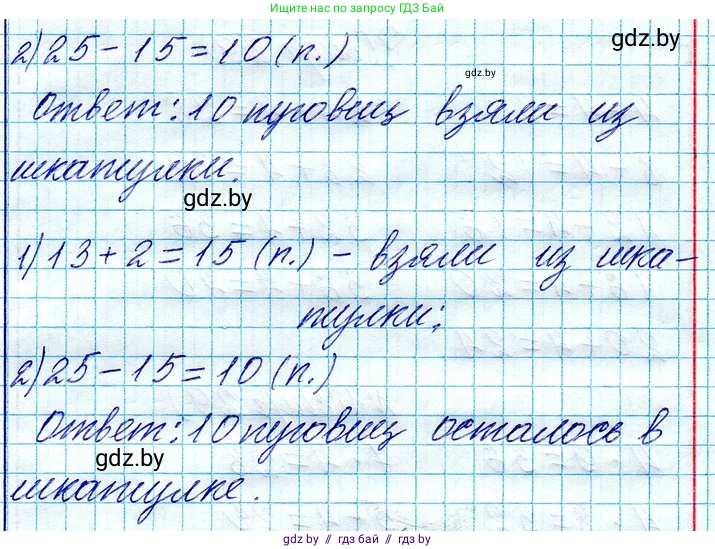 Ищите нас по запросу ГДЗ БАЙ
2) 25 - 15 = 10 (п.)
gdz.by
gdz.by
Ответ: 10 пуговиц взяли из
шкатулки.
gdz.by
1) 13 + 2 = 15 (п.) - взяли из шка-
тулки;
2) 25 - 15 = 10 (п.)
Ответ: 10 пуговиц осталось в
gdz.by
шкатулке.
gdz.by // гдз бай // гдз.by